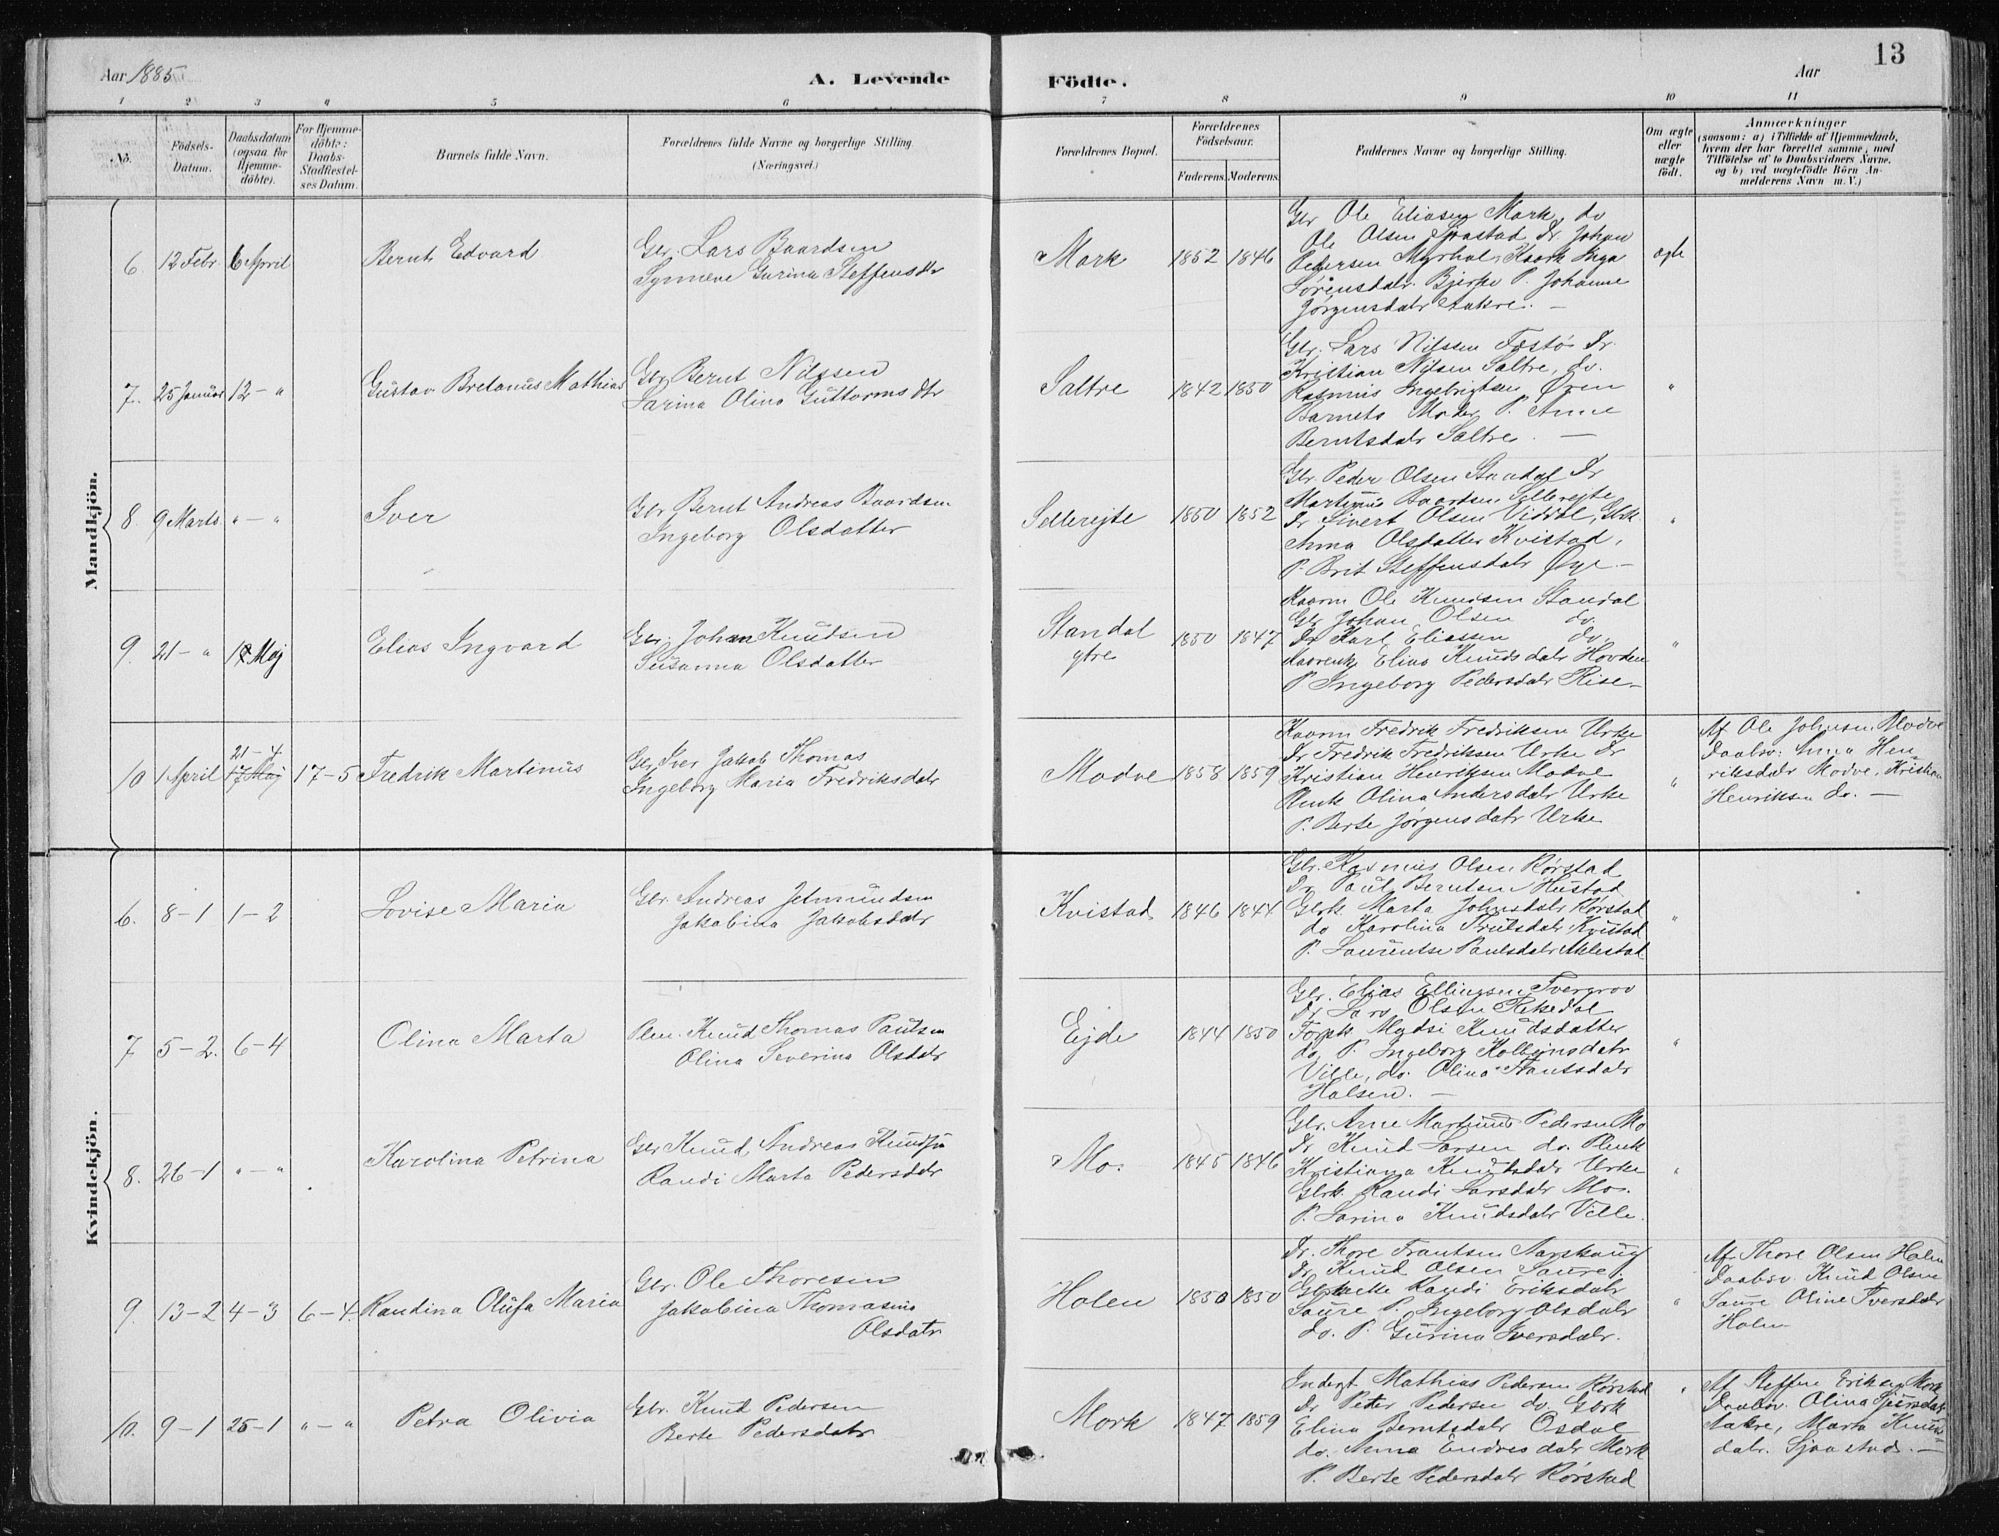 13
Aar 1885
A. Levende Födte.
Aar
1 2 3 4 5 6 7 8 9 10 11
No.
Födsels-Datum.
Daabsdatum (ogsaa for Hjemmedöbte).
For Hjemmedöbte: Daabs-Stadfiestelses Datum.
Barnets fulde Navn.
Forældrenes fulde Navne og borgerlige Stilling (Næringsvei.)
Forældrenes Bopæl.
Forældrenes Födselsaar.
Faderens. Moderens.
Faddernes Navne og borgerlige Stilling.
Om ægte eller uægte födt.
Anmærkninger
(saasom: a) i Tilfælde af Hjemmedaab, hvem der har forrettet samme, med Tilföielse af to Daabsvidners Navne, og b) ved uægtefödte Börn Anmelderens Navn m.V.)
Mandkjön.
6. 12 Febr. 6 April
Bernt Edvard
Gbr. Lars Baardsen
Synneve Gurina Steffensdtr
Mork
1852 1846
Gbr Ole Eliasen Mork, do
Ole Olsen Sjaastad, Dr Johan
Pedersen Myrhol, Kaark Inga
Sørensdatr Bjerke P. Johanne
Jørgensdatr Aakre. —
ægte
7. 25 Januar 12 - "
Gustav Bretanus Mathias
Gbr Bernt Nilssen
Sarina Olina Guttormsdtr
Saltre
1842 1850
Gbr. Lars Nilssen Fostø Dr.
Kristian Nilsen Saltre, do.
Rasmus Ingebrigtsen Øven
Barnets Moder P. Anne
Berntsdatr Saltre. —
"
8 9 Marts " - "
Iver
Gbr Bernt Andreas Baardsen
Ingeborg Olsdatter
Sellerejte
1850 1852
Gbr. Peder Olsen Standal Dr
Martinus Baardsen Sellerejte
Dr Sivert Olsen Viddal, Gbrk
Anna Olsdatter Kvistad,
P. Brit Steffensdatr Øye. —
"
9. 21 - " 17 Maj
Elias Ingvard
Gbr. Johan Knudsen
Susanna Olsdatter
Standal
ytre
1850 1847
Kaarm Ole Knudsen Standal
Gbr Johan Olsen do.
Dr Karl Eliassen do.
Kaarenk Elias Knudsdatr Hovden
P Ingeborg Pedersdatr Rise —
"
10 1 April 21 - 4. 17 Maj 17 - 5
Fredrik Martinus
Gbr Iver Jakob Thomas
Ingeborg Maria Fredriksdatr
Modve
1858 1859
Kaarm Fredrik Fredriksen Urke
Dr Fredrik Fredriksen Urke Dr
Kristian Henriksen Modve
Plenk Olina Andersdatr Urke
P. Berte Jørgensdatr Urke
"
Af Ole Johnsen Modve
Daabsv. Anna Hen-
riksdatr Modve, Kristian
Henriksen do. —
Kvindekjön.
6. 8 - 1 1 - 2
Lovise Maria
Gbr. Andreas Jetmundsen
Jakobina Jakobsdatr
Kvistad
1846 1844
Gbr. Rasmus Olsen Rørstad
Dr Paul Berntsen Hustad
Gbrk Marta Johnsdatr Rørstad
do Karolina Trulsdatr Kvistad
P. Laurentse Paulsdatr Melestad
"
7 5 - 2. 6 - 4
Olina Marta
Plm. Knud Thomas Paulsen
Olina Severina Olsdatr
Ejde
1844 1850
Gbr. Elias Ellingsen Tvergrov
Dr. Lars Olsen Rekedal
Forpk Madsi Knudsdatter
do, P. Ingeborg Kolbeinsdatr
Ville, do. Olina Frantsdatr
Halsen. —
"
8. 26 - 1 " - "
Karolina Petrina
Gbr Knud Andreas Knudsen
Randi Marta Pedersdatr
Mo.
1845 1846
Gbr. Arne Martinus Pedersen Mo
Dr Knud Larsen do. Plenk
Kristiana Knudsdatr Urke
Gbrk. Randi Larsdatr Mo.
P. Sarina Knudsdatr Ville.
"
9. 13 - 2 4 - 3 6 - 4
Randina Olufa Maria
Gbr. Ole Thoresen
Jakobina Thomasine
Olsdatr
Holen
1850 1850
Dr. Thore Frantsen Aarskaug
Dr. Knud Olsen Saure,
Randi Eriksdatr
Saure P. Ingeborg Olsdatr
do. P. Gurina Iversdatr.
"
Af Thore Olsen Holen
Daabsv. Knud Olsen
Saure Oline Iversdatr
Holen
10. 9 - 1 25 - 1 " - "
Petra Olivia
Gbr. Knud Pedersen
Berte Pedersdatr
Mork
1847 1859
Inderst Mathias Pedersen Rørstad
Dr Peter Pedersen do. Gbrk
Elina Berntsdatr Osdal
do. Anna Endresdatr Mork
P. Berte Pedersdatr Rørstad
"
Af Steffen Eriksen Mork
Daabsv. Olina Sjursdatr
Aakre, Marta Knuds-
datr. Sjaastad. —